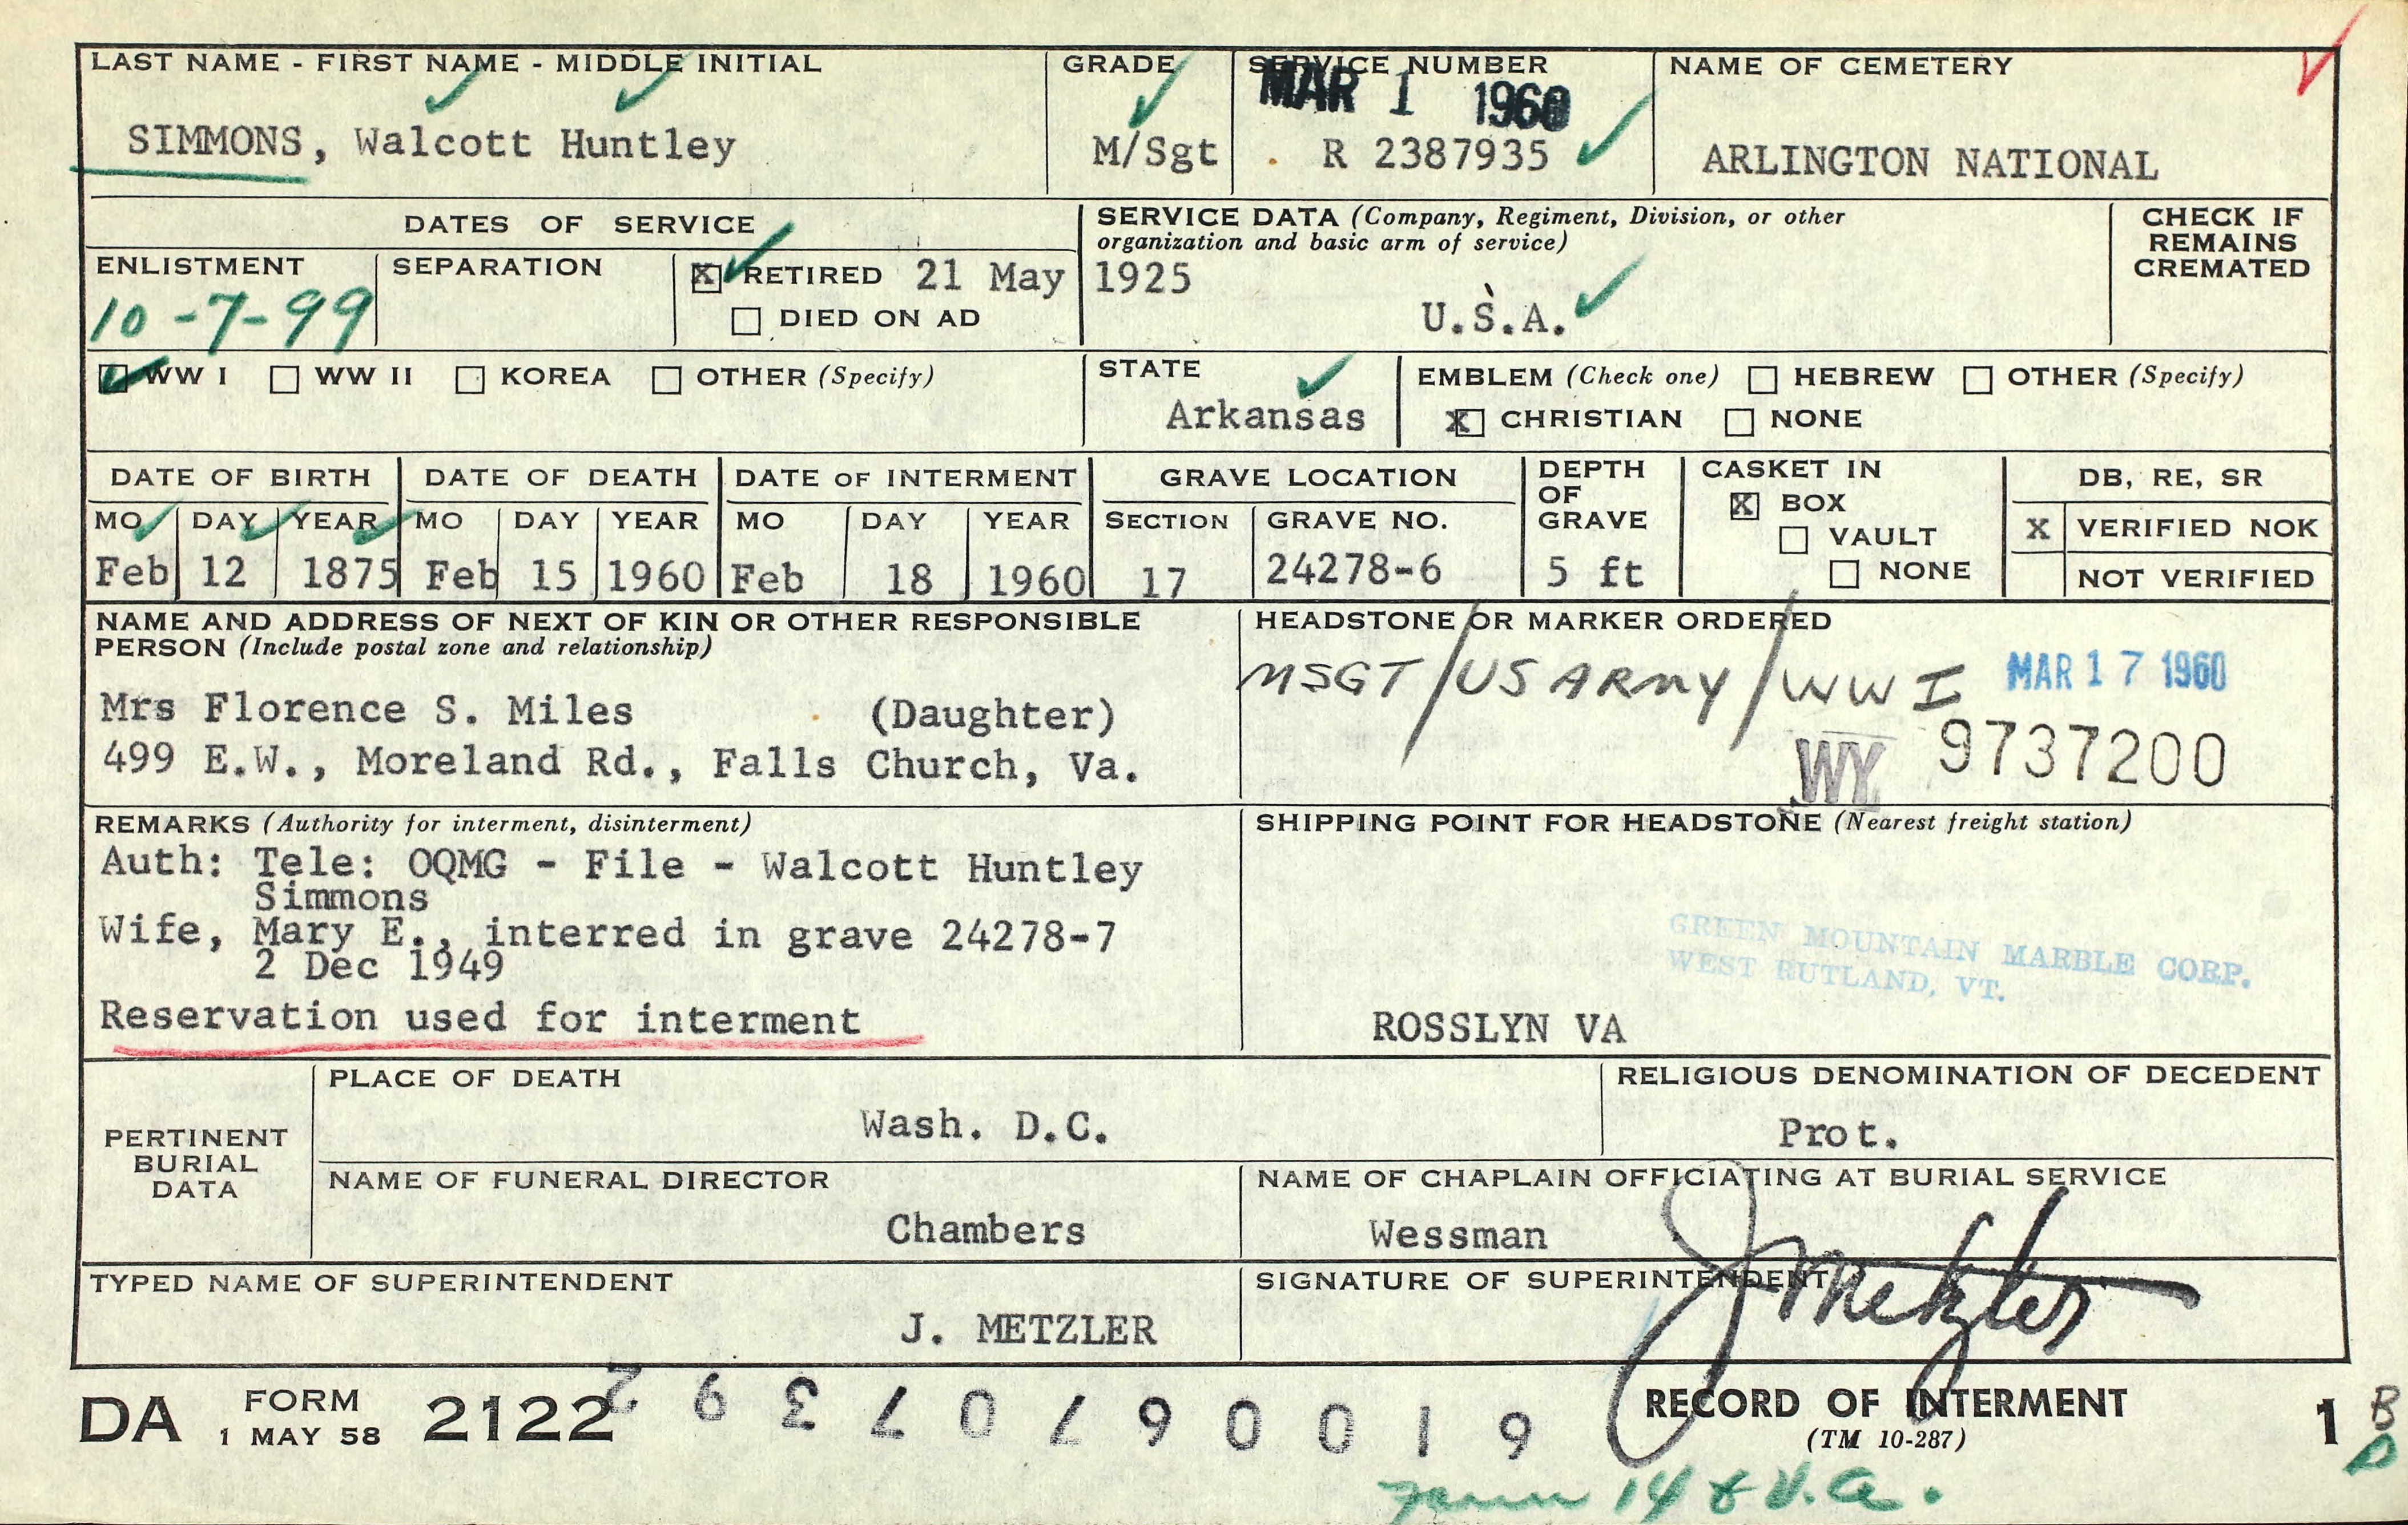 LAST NAME - FIRST NAME - MIDDLE INITIAL
SIMMONS, Walcott Huntley
GRADE
M/Sgt
SERVICE NUMBER
MAR 1 1960
R 2387935
NAME OF CEMETERY
ARLINGTON NATIONAL
DATES OF SERVICE
ENLISTMENT
10-7-99
SEPARATION
X RETIRED 21 May 1925
DIED ON AD
SERVICE DATA (Company, Regiment, Division, or other
organization and basic arm of service)
U.S.A.
CHECK IF
REMAINS
CREMATED
WW I WW II KOREA OTHER (Specify)
STATE
Arkansas
EMBLEM (Check one) HEBREW OTHER (Specify)
X CHRISTIAN NONE
DATE OF BIRTH
MO DAY YEAR
Feb 12 1875
DATE OF DEATH
MO DAY YEAR
Feb 15 1960
DATE OF INTERMENT
MO DAY YEAR
Feb 18 1960
GRAVE LOCATION
SECTION GRAVE NO.
17 24278-6
DEPTH
OF
GRAVE
5 ft
CASKET IN
X BOX
VAULT
NONE
DB, RE, SR
X VERIFIED NOK
NOT VERIFIED
NAME AND ADDRESS OF NEXT OF KIN OR OTHER RESPONSIBLE
PERSON (Include postal zone and relationship)
Mrs Florence S. Miles (Daughter)
499 E.W., Moreland Rd., Falls Church, Va.
HEADSTONE OR MARKER ORDERED
MSGT/US ARMY/WW I MAR 17 1960
WY 9737200
REMARKS (Authority for interment, disinterment)
Auth: Tele: OQMG - File - Walcott Huntley
Simmons
Wife, Mary E., interred in grave 24278-7
2 Dec 1949
Reservation used for interment
SHIPPING POINT FOR HEADSTONE (Nearest freight station)
GREEN MOUNTAIN MARBLE CORP.
WEST RUTLAND, VT.
ROSSLYN VA
PERTINENT
BURIAL
DATA
PLACE OF DEATH
Wash. D.C.
RELIGIOUS DENOMINATION OF DECEDENT
Prot.
NAME OF FUNERAL DIRECTOR
Chambers
NAME OF CHAPLAIN OFFICIATING AT BURIAL SERVICE
Wessman
TYPED NAME OF SUPERINTENDENT
J. METZLER
SIGNATURE OF SUPERINTENDENT
J Metzler
DA FORM 2122
1 MAY 58
RECORD OF INTERMENT
(TM 10-287)
1 B
14 & V.A.